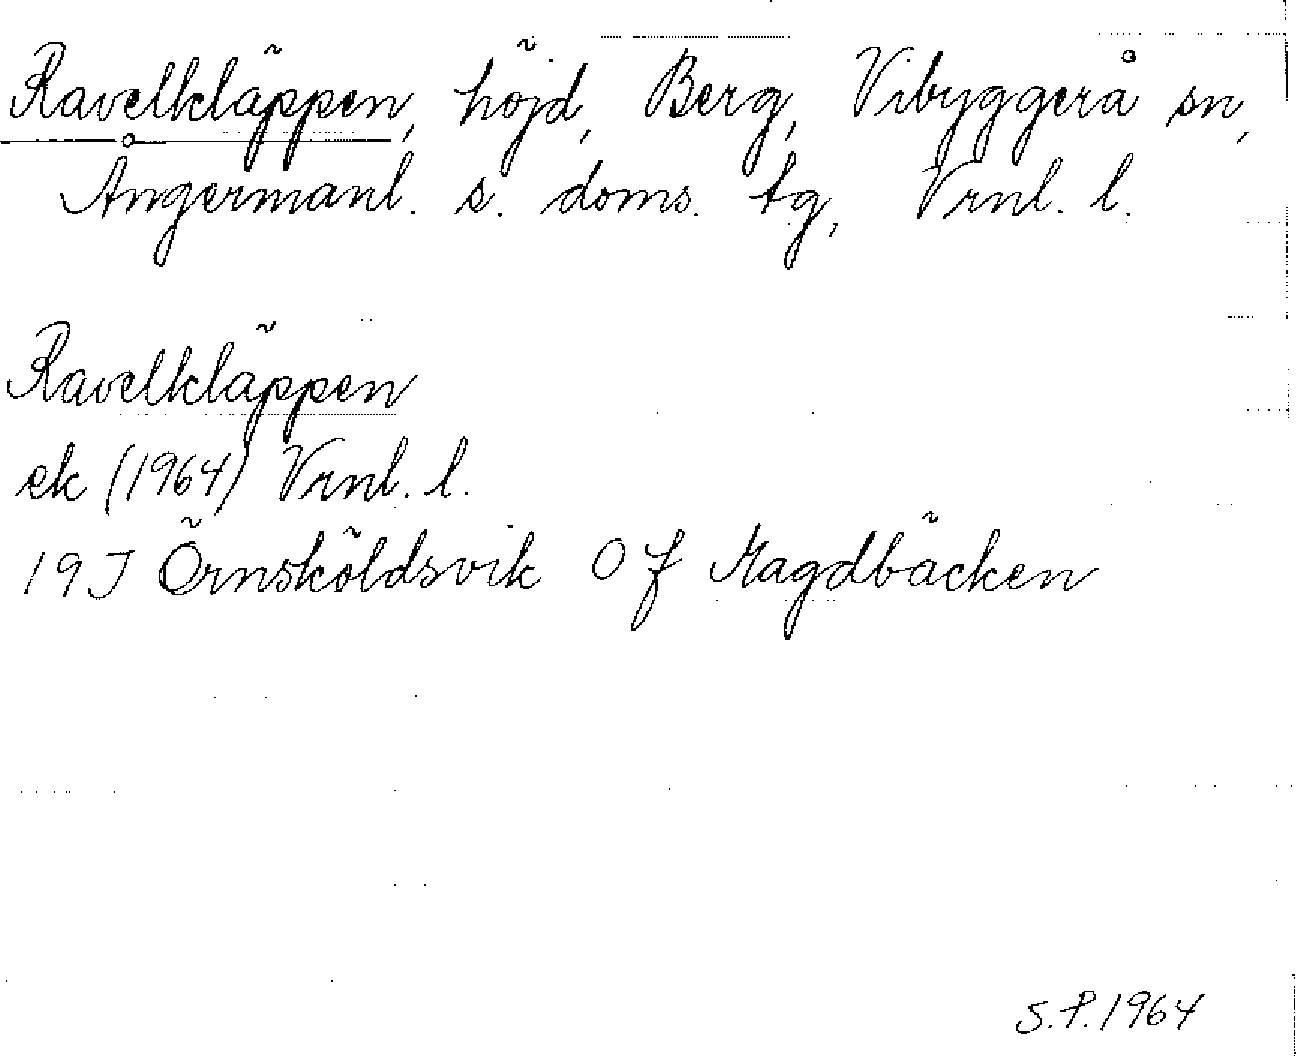 Ravelkläppen, höjd, Berg, Vibyggerå sn,
Ångermanl. s. doms. tg, Vrnl. l.
Ravelkläppen
ek (1964) Vrnl. l.
19J Örnsköldsvik 0 f Magdbäcken
S.P. 1964